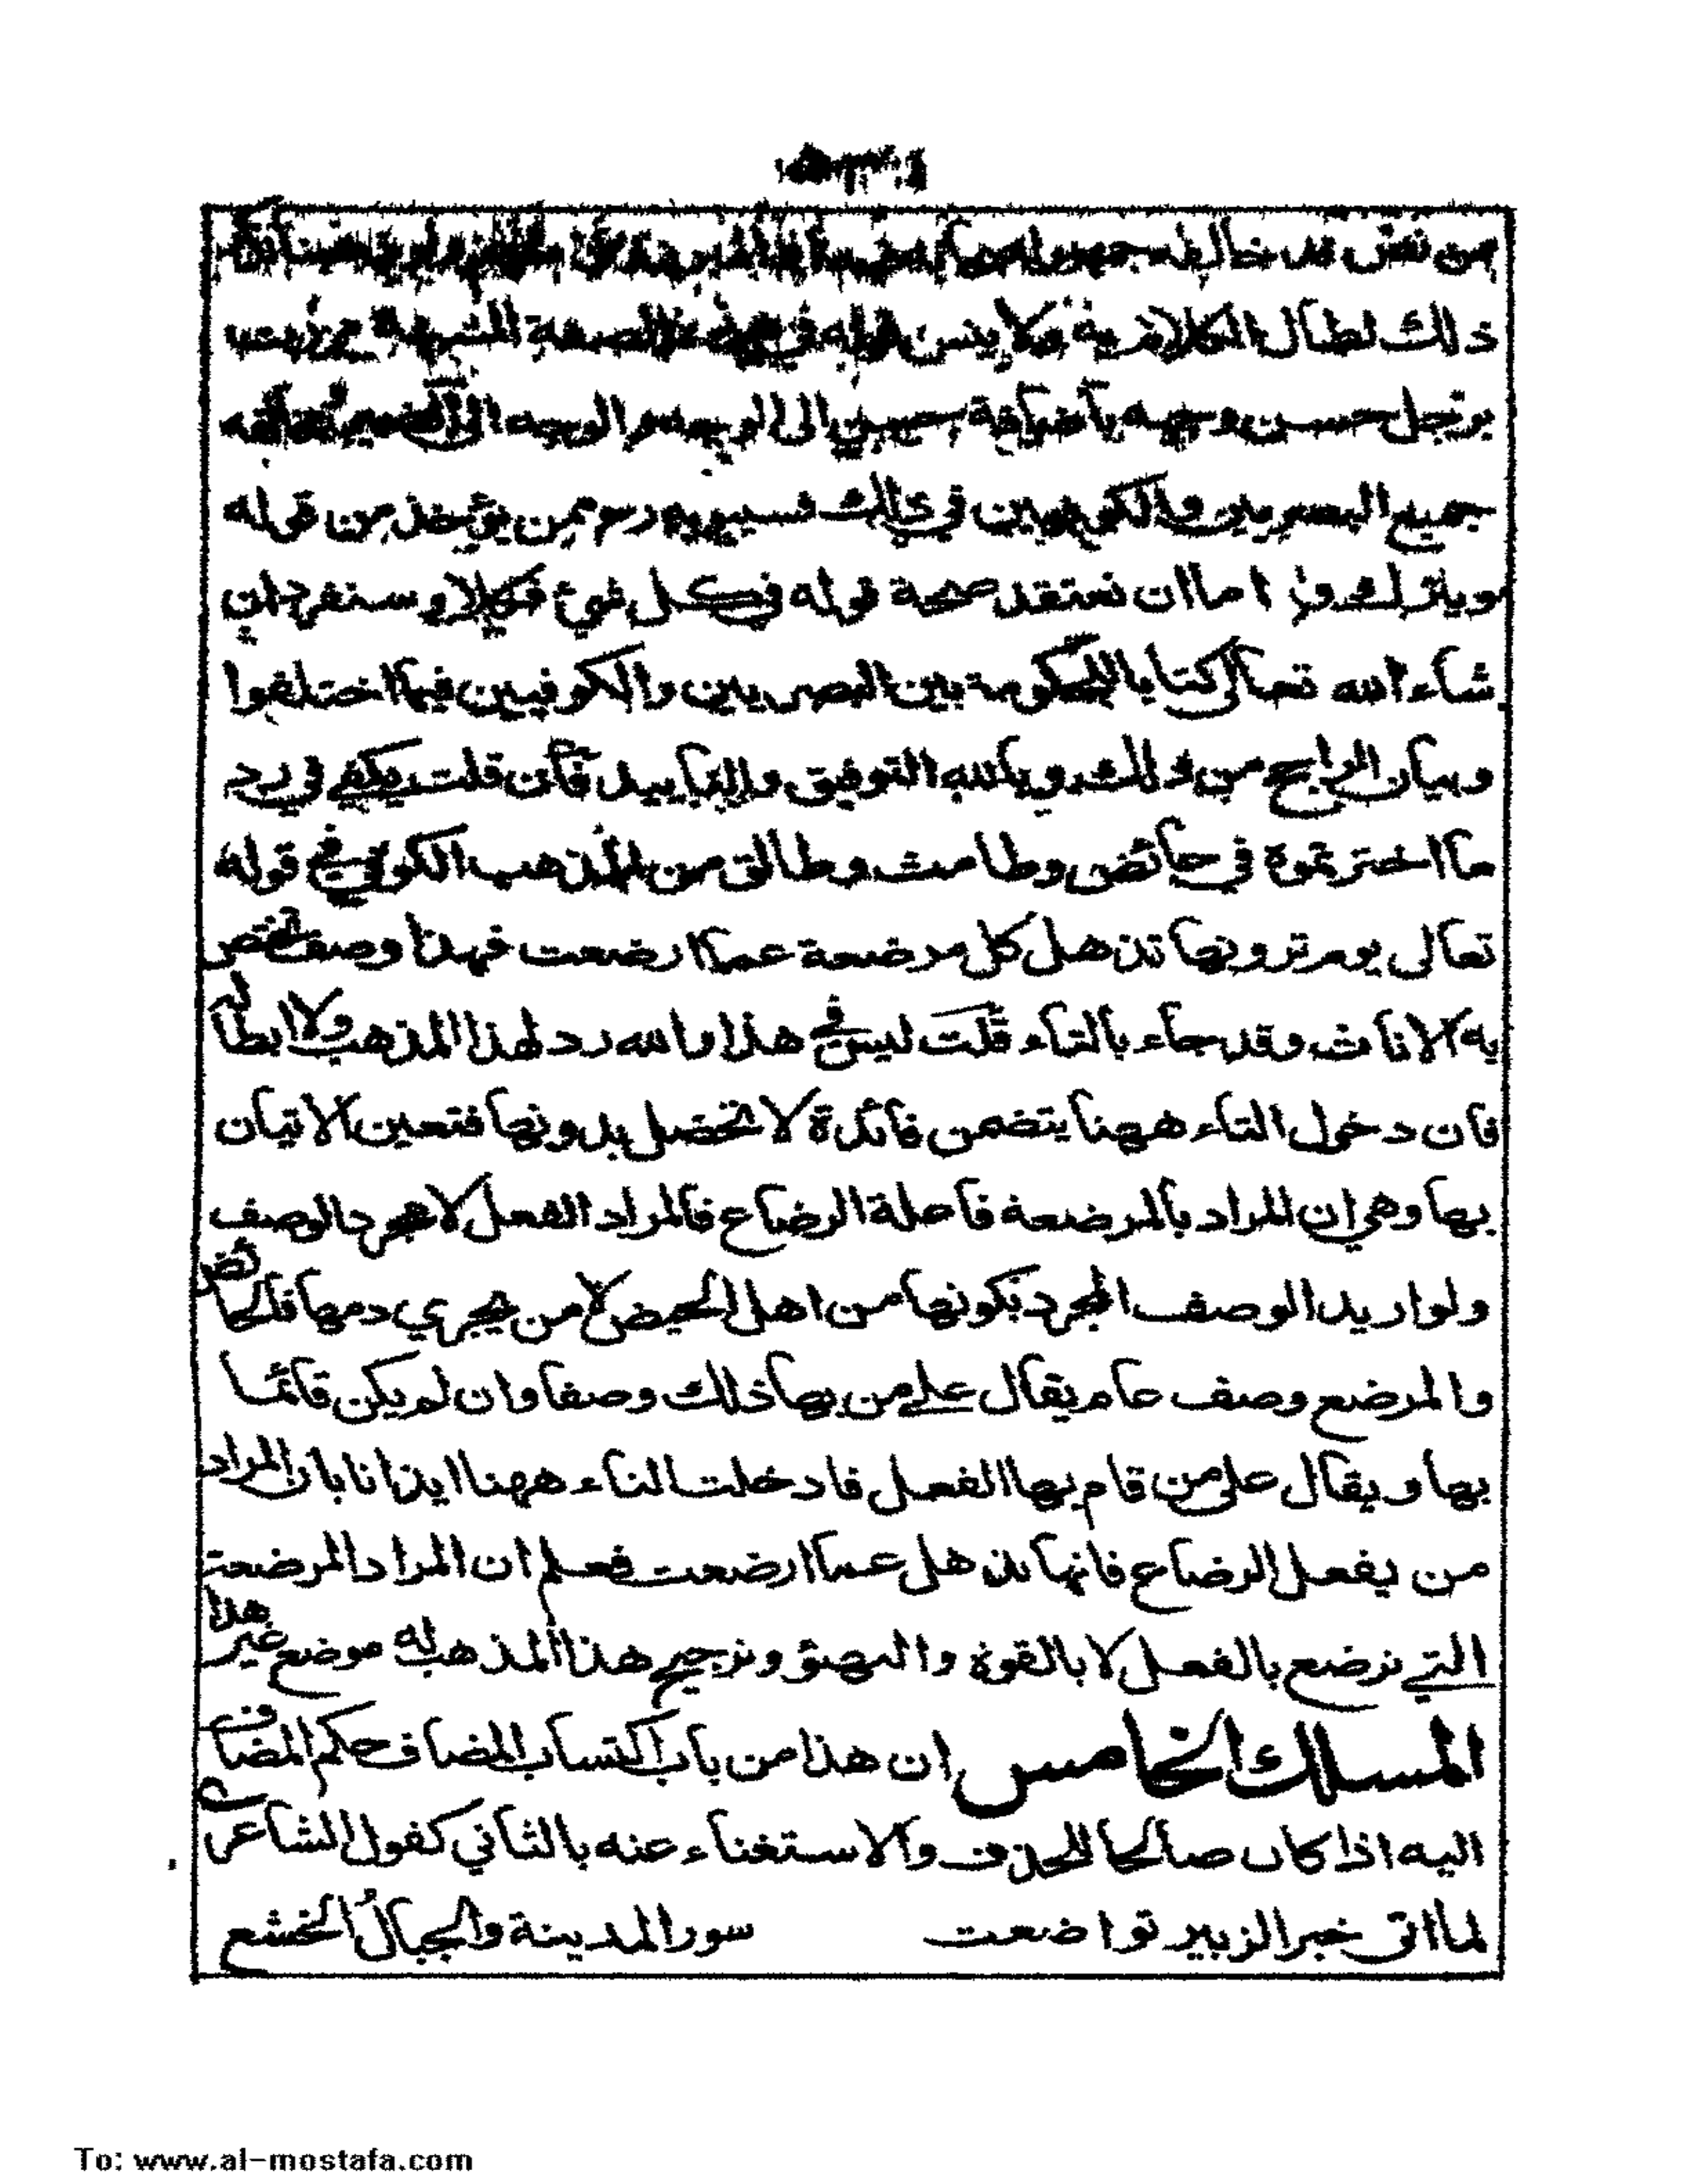 من نص قد خالفه جمهور
ذلك لطال الكلام فيه ولا ينس قوله في الصفة المشبهة مررت
برجل حسن وجهه باضافة حسن الى الوجه والوجه الى الضمير
جميع البصريين والكوفيين في ذلك فسيبويه رح ممن يؤخذ من قوله
ويترك واما ان نعتقد صحة قوله في كل شئ فكلا وسنفرد ان
شاء الله تعالى كتابا للحكومة بين البصريين والكوفيين فيما اختلفوا
وبيان الراجح من ذلك وبالله التوفيق والتاييد فان قلت يكفي في رد
ما اخترتموة في حائض وطامث وطالق من المذهب الكوفي في قوله
تعالى يوم ترونها تذهل كل مرضعة عما ارضعت فهذا وصف تختص
به الاناث وقد جاء بالتاء قلت ليس في هذا والله رد لهذا المذهب ولا ابطال له
فان دخول التاء ههنا يتضمن فائدة لا تحصل بدونها فتعين الاتيان
بها وهي ان المراد بالمرضعة فاعلة الرضاع فالمراد الفعل لا مجرد الوصف
ولو اريد الوصف المجرد بكونها من اهل الحيض لا من يجري دمها فالحائض
والمرضع وصف عام يقال على من بها ذلك وصفا وان لم يكن قائما
بها ويقال على من قام بها الفعل فادخلت التاء ههنا ايذانا بان المراد
من يفعل الرضاع فانها تذهل عما ارضعت فعلم ان المراد المرضعة
التي ترضع بالفعل لا بالقوة والتهيؤ وترجيح هذا المذهب له موضع غير هذا
المسلك الخامس ان هذا من باب اكتساب المضاف حكم المضاف
اليه اذا كان صالحا للحذف والاستغناء عنه بالثاني كقول الشاعر
لما اتى خبر الزبير تواضعت سور المدينة والجبالُ الخشع
To: www.al-mostafa.com